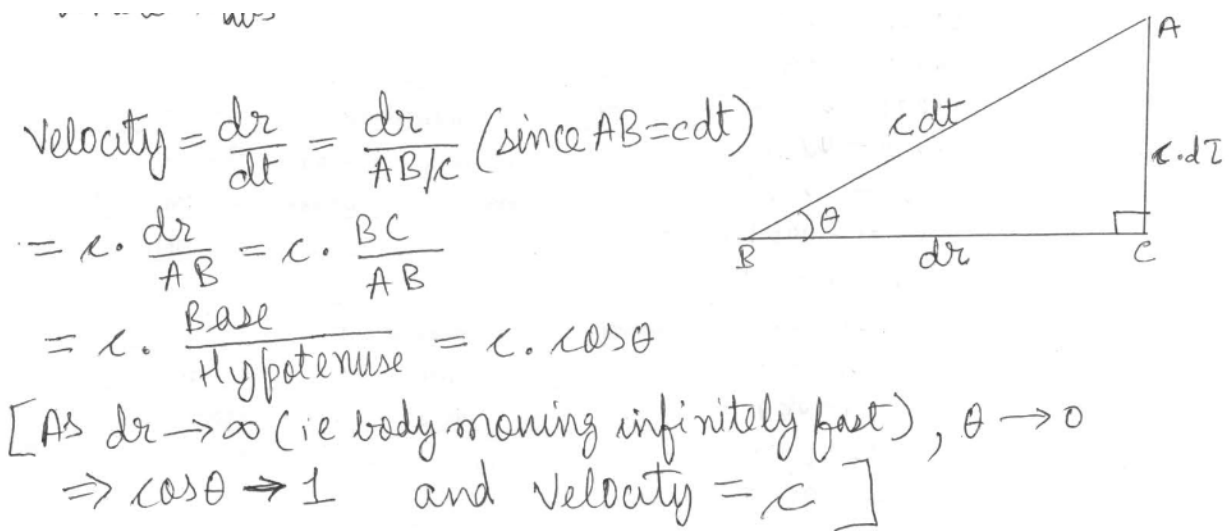 Velocity = dr/dt = dr/AB/c (since AB=cdt)
= c. dr/AB = c. BC/AB
= c. Base/Hypotenuse = c. cosθ
[As dr → ∞ (ie body moving infinitely fast), θ → 0
⇒ cosθ → 1 and velocity = c]
A
cdt
c.dτ
θ
B
dr
C